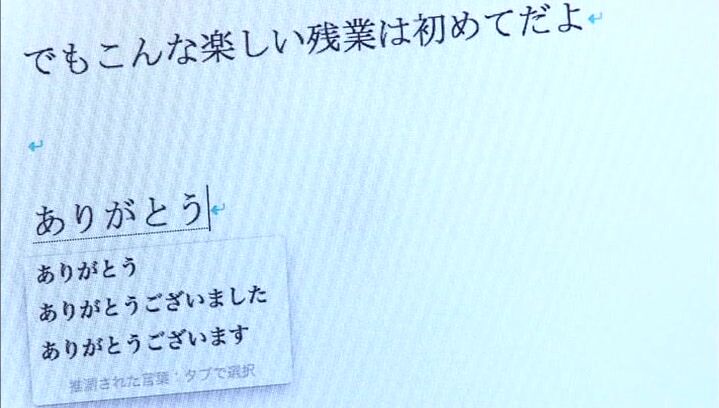 でもこんな楽しい残業は初めてだよ
ありがとう
ありがとう
ありがとうございました
ありがとうございます
推測された言葉：タブで選択